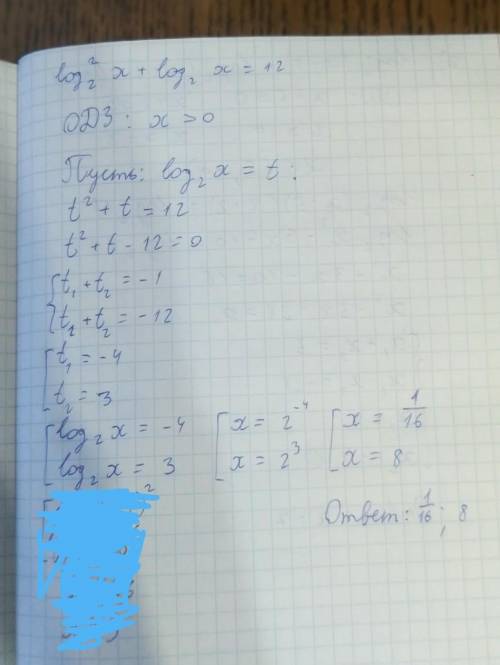 log₂² x + log₂ x = 12
ОДЗ: x > 0
Пусть: log₂ x = t;
t² + t = 12
t² + t - 12 = 0
{ t₁ + t₂ = -1
t₁ + t₂ = -12
[ t₁ = -4
t₂ = 3
[ log₂ x = -4 [ x = 2⁻⁴ [ x = 1/16
log₂ x = 3 x = 2³ x = 8
2
Ответ: 1/16; 8